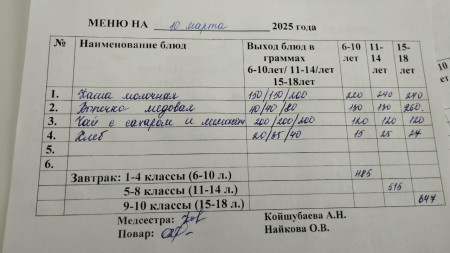 МЕНЮ НА 10 марта 2025 года
№ Наименование блюд Выход блюд в граммах 6-10лет/ 11-14/лет 15-18лет 6-10 лет 11-14 лет 15-18 лет
1. Каша молочная 150/150/200 220 240 240
2. медовая
3. Чай с сахаром и 200/200/200 120 120 120
4. Хлеб 20/35/40 15 25 27
5.
6.
Завтрак: 1-4 классы (6-10 л.) 485
5-8 классы (11-14 л.) 515
9-10 классы (15-18 л.) 647
Медсестра: Койшубаева А.Н.
Повар: Найкова О.В.
10
ет